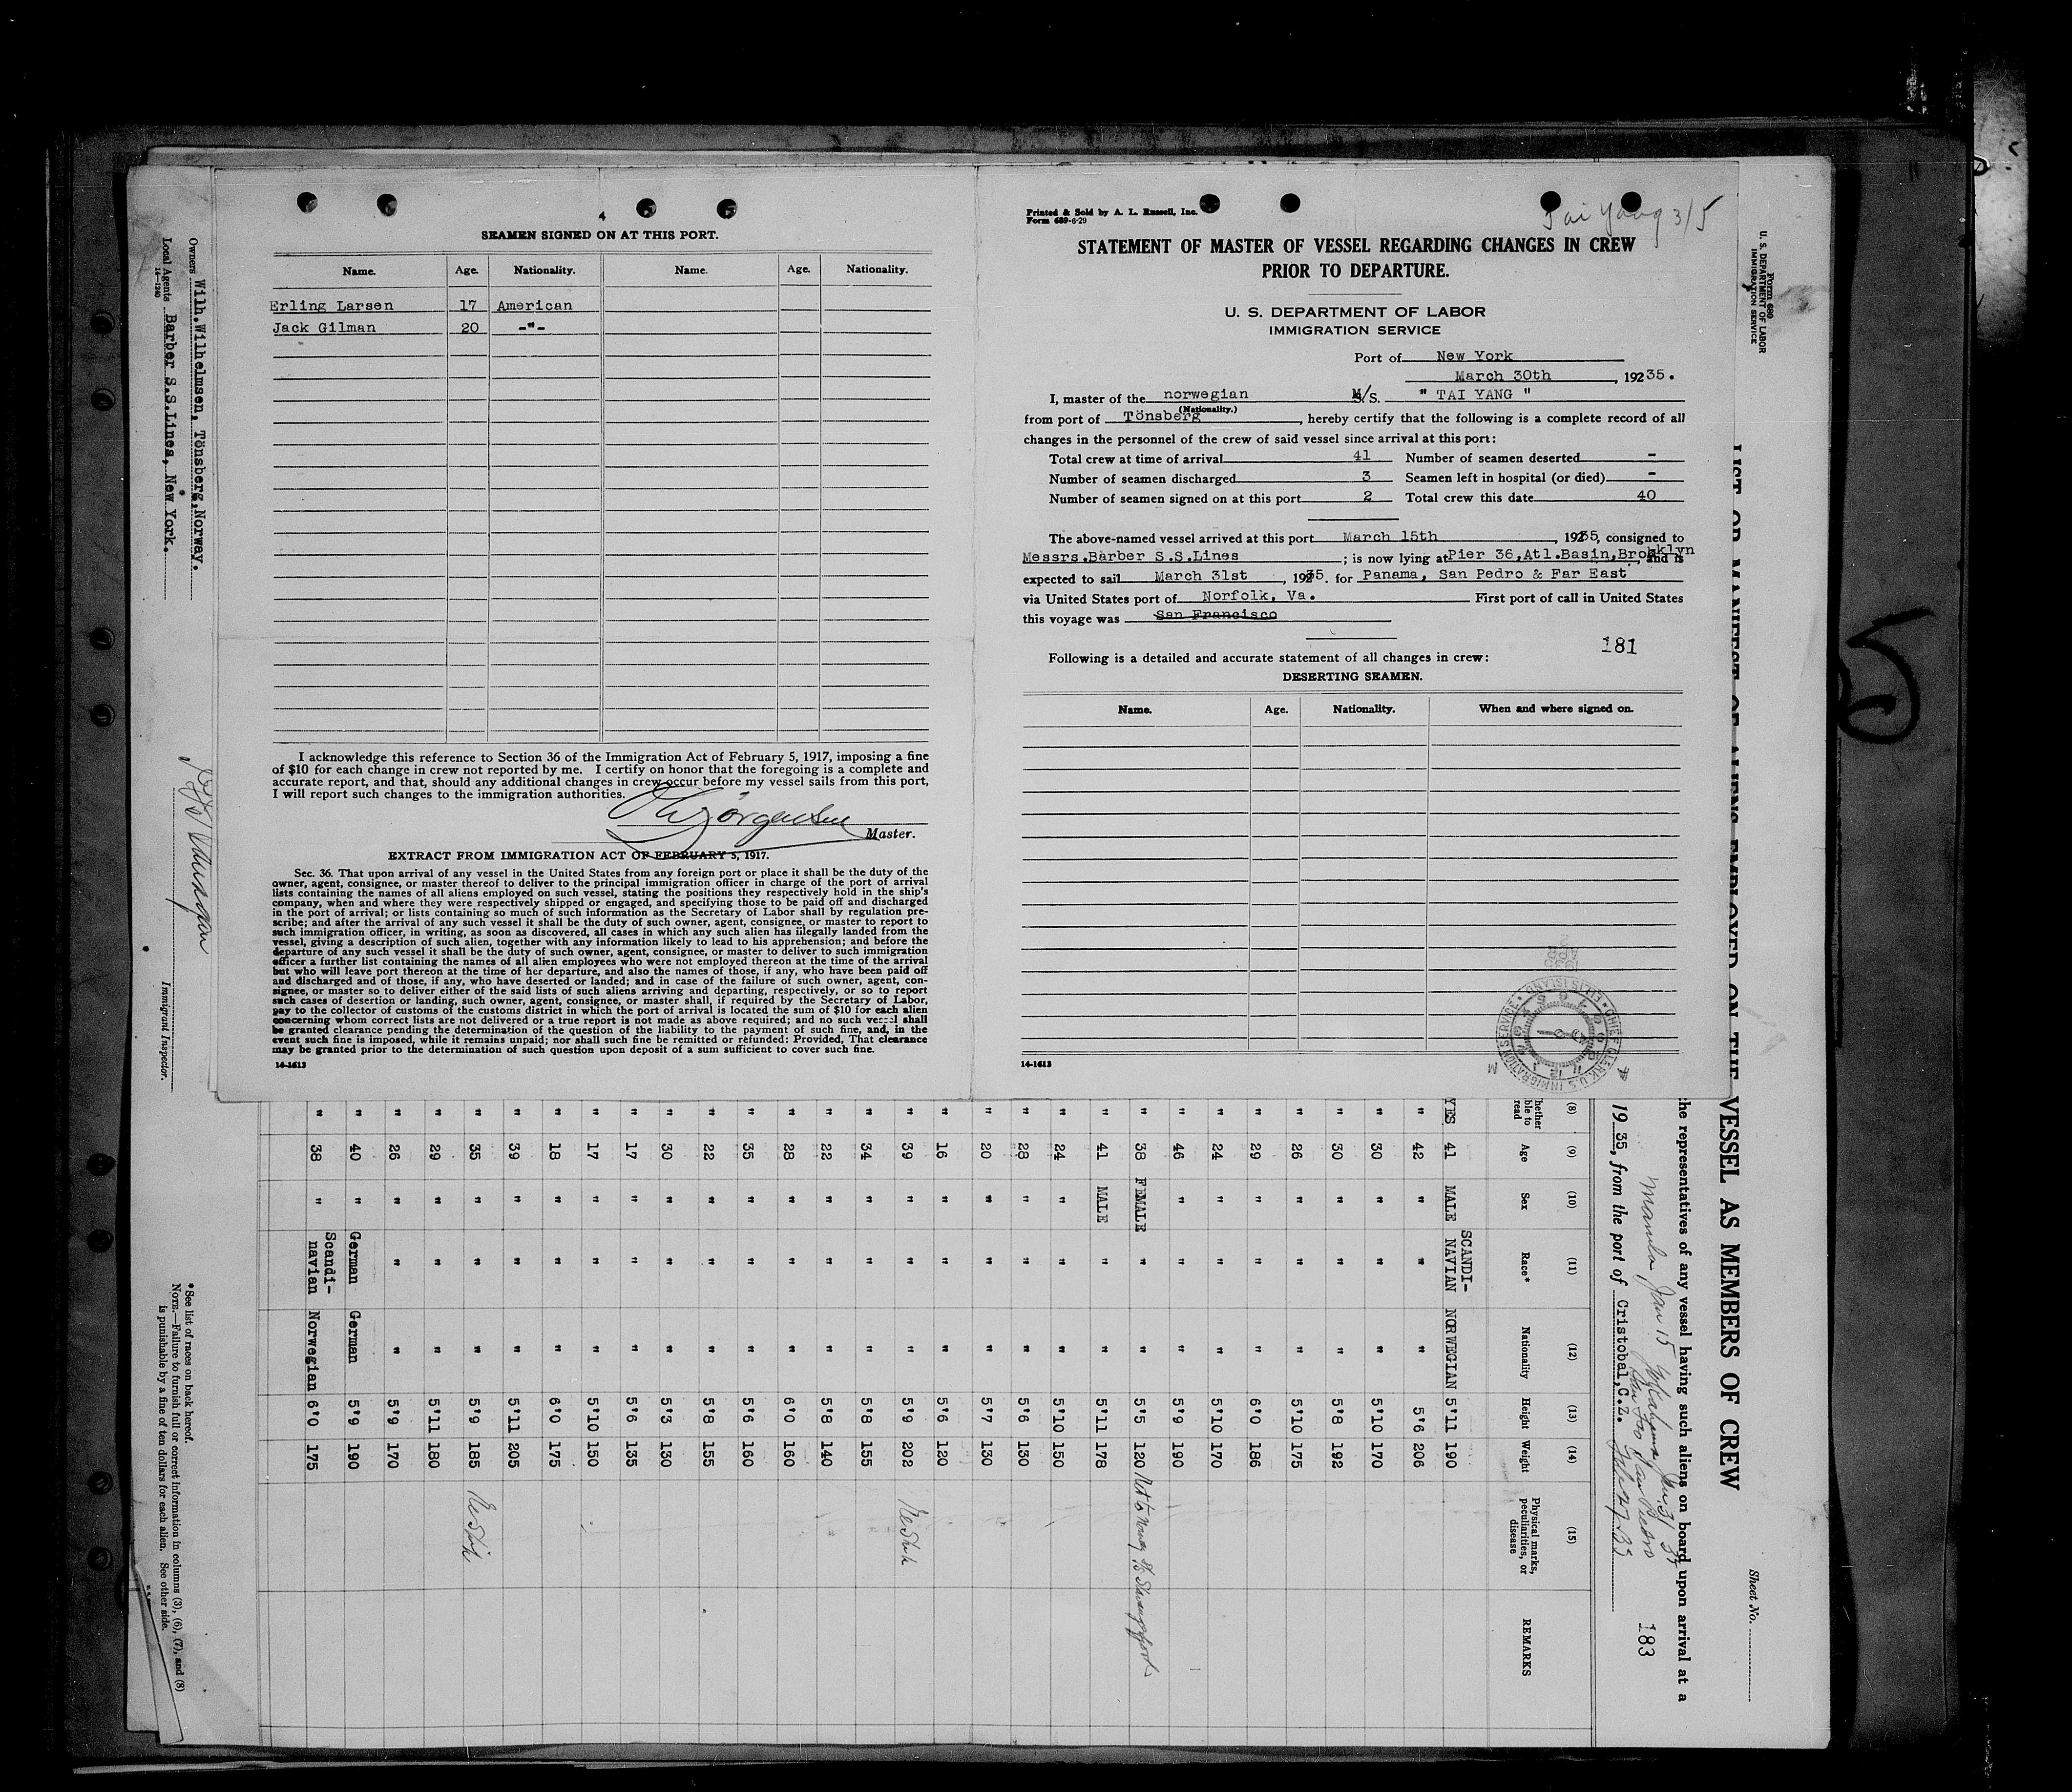 4
SEAMEN SIGNED ON AT THIS PORT.
Name. Age. Nationality. Name. Age. Nationality.
Erling Larsen 17 American
Jack Gilman 20 -"-
I acknowledge this reference to Section 36 of the Immigration Act of February 5, 1917, imposing a fine
of $10 for each change in crew not reported by me. I certify on honor that the foregoing is a complete and
accurate report, and that, should any additional changes in crew occur before my vessel sails from this port,
I will report such changes to the immigration authorities.
Jörgensen
Master.
EXTRACT FROM IMMIGRATION ACT OF FEBRUARY 5, 1917.
Sec. 36. That upon arrival of any vessel in the United States from any foreign port or place it shall be the duty of the
owner, agent, consignee, or master thereof to deliver to the principal immigration officer in charge of the port of arrival
lists containing the names of all aliens employed on such vessel, stating the positions they respectively hold in the ship's
company, when and where they were respectively shipped or engaged, and specifying those to be paid off and discharged
in the port of arrival; or lists containing so much of such information as the Secretary of Labor shall by regulation pre-
scribe; and after the arrival of any such vessel it shall be the duty of such owner, agent, consignee, or master to report to
such immigration officer, in writing, as soon as discovered, all cases in which any such alien has illegally landed from the
vessel, giving a description of such alien, together with any information likely to lead to his apprehension; and before the
departure of any such vessel it shall be the duty of such owner, agent, consignee, or master to deliver to such immigration
officer a further list containing the names of all alien employees who were not employed thereon at the time of the arrival
but who will leave port thereon at the time of her departure, and also the names of those, if any, who have been paid off
and discharged and of those, if any, who have deserted or landed; and in case of the failure of such owner, agent, con-
signee, or master so to deliver either of the said lists of such aliens arriving and departing, respectively, or so to report
such cases of desertion or landing, such owner, agent, consignee, or master shall, if required by the Secretary of Labor,
pay to the collector of customs of the customs district in which the port of arrival is located the sum of $10 for each alien
concerning whom correct lists are not delivered or a true report is not made as above required; and no such vessel shall
be granted clearance pending the determination of the question of the liability to the payment of such fine, and, in the
event such fine is imposed, while it remains unpaid; nor shall such fine be remitted or refunded: Provided, That clearance
may be granted prior to the determination of such question upon deposit of a sum sufficient to cover such fine.
14-1613
Printed & Sold by A. L. Russell, Inc.
Form 689-6-29
Tai Yang 3/5
STATEMENT OF MASTER OF VESSEL REGARDING CHANGES IN CREW
PRIOR TO DEPARTURE.
U. S. DEPARTMENT OF LABOR
IMMIGRATION SERVICE
Port of New York
March 30th, 192 35.
I, master of the norwegian M/S. " TAI YANG "
(Nationality.)
from port of Tönsberg, hereby certify that the following is a complete record of all
changes in the personnel of the crew of said vessel since arrival at this port:
Total crew at time of arrival 41 Number of seamen deserted -
Number of seamen discharged 3 Seamen left in hospital (or died) -
Number of seamen signed on at this port 2 Total crew this date 40
The above-named vessel arrived at this port March 15th, 1935, consigned to
Messrs.Barber S.S.Lines; is now lying at Pier 36,Atl.Basin,Brooklyn, and is
expected to sail March 31st, 1935. for Panama, San Pedro & Far East
via United States port of Norfolk, Va. First port of call in United States
this voyage was San Francisco
181
Following is a detailed and accurate statement of all changes in crew:
DESERTING SEAMEN.
Name. Age. Nationality. When and where signed on.
CHIEF CLERK U.S. IMMIGRATION SERVICE ELLIS ISLAND
14-1613
Form 680
U. S. DEPARTMENT OF LABOR
IMMIGRATION SERVICE
Sheet No.
LIST OR MANIFEST OF ALIENS EMPLOYED ON THE VESSEL AS MEMBERS OF CREW
the representatives of any vessel having such aliens on board upon arrival at a
Manila Jan 15
183
1935, from the port of Cristobal,C.Z.
(8) (9) (10) (11) (12) (13) (14) (15)
hether ble to read Age Sex Race* Nationality Height Weight Physical marks, peculiarities, or disease REMARKS
YES 41 MALE SCANDI-NAVIAN NORWEGIAN 5'11 190
" 42 " " " 5'6 206
" 30 " " " 5'10 170
" 30 " " " 5'8 192
" 26 " " " 5'10 175
" 29 " " " 6'0 186
" 24 " " " 5'10 170
" 46 " " " 5'9 190
" 38 FEMALE " " 5'5 120
" 41 MALE " " 5'11 178
" 24 " " " 5'10 150
" 28 " " " 5'6 130
" 20 " " " 5'7 130
" 16 " " " 5'6 120
" 39 " " " 5'9 202
" 34 " " " 5'8 155
" 22 " " " 5'8 140
" 28 " " " 6'0 160
" 35 " " " 5'6 160
" 22 " " " 5'8 155
" 30 " " " 5'3 130
" 17 " " " 5'6 135
" 17 " " " 5'10 150
" 18 " " " 6'0 175
" 39 " " " 5'11 205
" 35 " " " 5'9 185
" 29 " " " 5'11 180
" 26 " " " 5'9 170
" 40 " German German 5'9 190
" 38 " Scandi-navian Norwegian 6'0 175
Owners Wilh.Wilhelmsen, Tönsberg,Norway.
Local Agents Barber S.S.Lines, New York.
14-1240
Immigrant Inspector.
* See list of races on back hereof.
NOTE.—Failure to furnish full or correct information in columns (3), (6), (7), and (8)
is punishable by a fine of ten dollars for each alien. See other side.